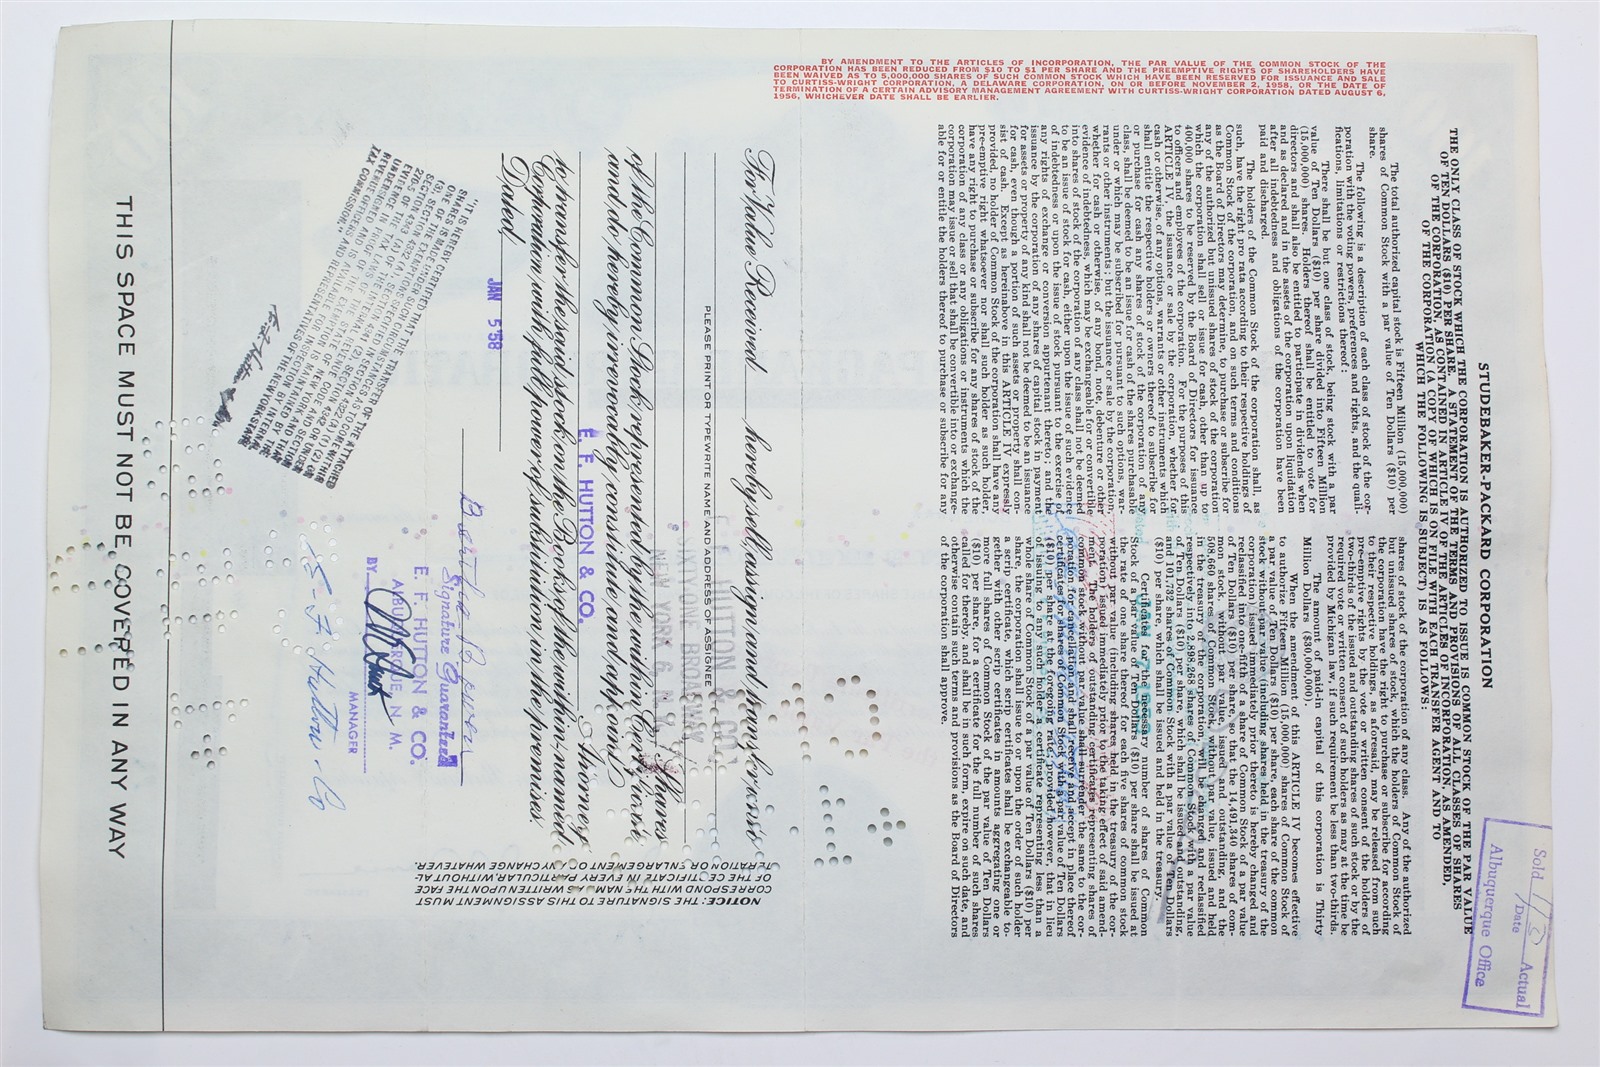 BY AMENDMENT TO THE ARTICLES OF INCORPORATION, THE PAR VALUE OF THE COMMON STOCK OF THE
CORPORATION HAS BEEN REDUCED FROM $10 TO $1 PER SHARE AND THE PREEMPTIVE RIGHTS OF SHAREHOLDERS HAVE
BEEN WAIVED AS TO 5,000,000 SHARES OF SUCH COMMON STOCK WHICH HAVE BEEN RESERVED FOR ISSUANCE AND SALE
TO CURTISS-WRIGHT CORPORATION, A DELAWARE CORPORATION, ON OR BEFORE NOVEMBER 2, 1958, OR THE DATE OF
TERMINATION OF A CERTAIN ADVISORY MANAGEMENT AGREEMENT WITH CURTISS-WRIGHT CORPORATION DATED AUGUST 6,
1956, WHICHEVER DATE SHALL BE EARLIER.
STUDEBAKER-PACKARD CORPORATION
THE ONLY CLASS OF STOCK WHICH THE CORPORATION IS AUTHORIZED TO ISSUE IS COMMON STOCK OF THE PAR VALUE
OF TEN DOLLARS ($10) PER SHARE. A STATEMENT OF ALL OF THE TERMS AND PROVISIONS OF CLASSES OF SHARES
OF THE CORPORATION, AS CONTAINED IN ARTICLE IV OF THE ARTICLES OF INCORPORATION, AS AMENDED,
OF THE CORPORATION (A COPY OF WHICH IS ON FILE WITH EACH TRANSFER AGENT AND TO
WHICH THE FOLLOWING IS SUBJECT) IS AS FOLLOWS:
The total authorized capital stock is Fifteen Million (15,000,000)
shares of Common Stock with a par value of Ten Dollars ($10) per
share.
The following is a description of each class of stock of the cor-
poration with the voting powers, preferences and rights, and the quali-
fications, limitations or restrictions thereof:
There shall be but one class of stock, being stock with a par
value of Ten Dollars ($10) per share divided into Fifteen Million
(15,000,000) shares. Holders thereof shall be entitled to vote for
directors and shall also be entitled to participate in dividends when
and as declared and in the assets of the corporation upon liquidation
after all indebtedness and obligations of the corporation have been
paid and discharged.
The holders of the Common Stock of the corporation shall, as
such, have the right pro rata according to their respective holdings of
Common Stock of the corporation, and on such terms and conditions
as the Board of Directors may determine, to purchase or subscribe for
any of the authorized but unissued shares of stock of the corporation
which the corporation shall sell or issue for cash, other than up to
400,000 shares to be reserved by the Board of Directors for issuance
to officers and employees of the corporation. For the purposes of this
ARTICLE IV, the issuance or sale by the corporation, whether for
cash or otherwise, of any options, warrants or other instruments which
shall entitle the respective holders or owners thereof to subscribe for
or purchase for cash any shares of stock of the corporation of any
class, shall be deemed to be an issue for cash of the shares purchasable
under or which may be subscribed for pursuant to such options, war-
rants or other instruments; but the issuance or sale by the corporation,
whether for cash or otherwise, of any bond, note, debenture or other
evidence of indebtedness, which may be exchangeable for or convertible
into shares of stock of the corporation of any class shall not be deemed
to be an issue of stock for cash, either upon the issue of such evidence
of indebtedness or upon the issue of stock pursuant to the exercise of
any rights of exchange or conversion appurtenant thereto; and the
issuance by the corporation of any shares of capital stock in payment
for assets or property of any kind shall not be deemed to be an issuance
for cash, even though a portion of such assets or property shall con-
sist of cash. Except as hereinabove in this ARTICLE IV expressly
provided, no holder of Common Stock of the corporation shall have any
pre-emptive right whatsoever nor shall such holder, as such holder,
have any right to purchase or subscribe for any shares of stock of the
corporation of any class or any obligations or instruments which the
corporation may issue or sell that shall be convertible into or exchange-
able for or entitle the holders thereof to purchase or subscribe for any
shares of stock of the corporation of any class. Any of the authorized
but unissued shares of stock of which the holders of Common Stock of
the corporation have the right to purchase or subscribe for according
to their respective holdings, as aforesaid, may be released from such
pre-emptive rights by the vote or written consent of the holders of
two-thirds of the issued and outstanding shares of such stock or by the
required vote or written consent of such holders as may at the time be
provided by Michigan law, if such requirement be less than two-thirds.
The amount of paid-in capital of this corporation is Thirty
Million Dollars ($30,000,000).
When the amendment of this ARTICLE IV becomes effective
to authorize Fifteen Million (15,000,000) shares of Common Stock of
a par value of Ten Dollars ($10) per share, each share of the common
stock without par value (including shares held in the treasury of the
corporation) issued immediately prior thereto is hereby changed and
reclassified into one-fifth of a share of Common Stock of a par value
of Ten Dollars ($10) per share, so that the 14,491,340 shares of com-
mon stock, without par value, issued and outstanding, and the
508,660 shares of Common Stock, without par value, issued and held
in the treasury of the corporation, will be changed and reclassified
respectively into 2,898,268 shares of Common Stock with a par value
of Ten Dollars ($10) per share, which shall be issued and outstanding,
and 101,732 shares of Common Stock with a par value of Ten Dollars
($10) per share, which shall be issued and held in the treasury.
Certificates for the necessary number of shares of Common
Stock of a par value of Ten Dollars ($10) per share shall be issued at
the rate of one share thereof for each five shares of common stock
without par value (including shares held in the treasury of the cor-
poration) issued immediately prior to the taking effect of said amend-
ment. The holders of outstanding certificates representing shares of
common stock without par value shall surrender the same to the cor-
poration for cancellation and shall receive and accept in place thereof
certificates for shares of Common Stock with a par value of Ten Dollars
($10) per share at the foregoing rate; provided however, that in lieu
of issuing to any such holder a certificate representing less than a
whole share of Common Stock of a par value of Ten Dollars ($10) per
share, the corporation shall issue to or upon the order of such holder
a scrip certificate, which scrip certificates shall be exchangeable to-
gether with other scrip certificates in amounts aggregating one or
more full shares of Common Stock of the par value of Ten Dollars
($10) per share, for a certificate for the full number of such shares
called for thereby, and shall be in such form, expire on such date, and
otherwise contain such terms and provisions as the Board of Directors
of the corporation shall approve.
Sold 1/3 Actual
Date
Albuquerque Office
For Value Received, hereby sell, assign and transfer unto
PLEASE PRINT OR TYPEWRITE NAME AND ADDRESS OF ASSIGNEE
HUTTON & CO.
SIXTY ONE BROADWAY
NEW YORK 6, N. Y.
Shares
of the Common Stock represented by the within Certificate
and do hereby irrevocably constitute and appoint
E. F. HUTTON & CO.
Attorney
to transfer the said stock on the Books of the within-named
Corporation with full power of substitution in the premises.
Dated,
JAN 5 '58
NOTICE: THE SIGNATURE TO THIS ASSIGNMENT MUST
CORRESPOND WITH THE NAME AS WRITTEN UPON THE FACE
OF THE CERTIFICATE IN EVERY PARTICULAR, WITHOUT AL-
TERATION OR ENLARGEMENT OR ANY CHANGE WHATEVER.
Signature Guaranteed
E. F. HUTTON & CO.
ALBUQUERQUE, N. M.
BY
MANAGER
E. F. Hutton & Co
"IT IS HEREBY CERTIFIED THAT THE TRANSFER OF THE ATTACHED
THIS SPACE MUST NOT BE COVERED IN ANY WAY